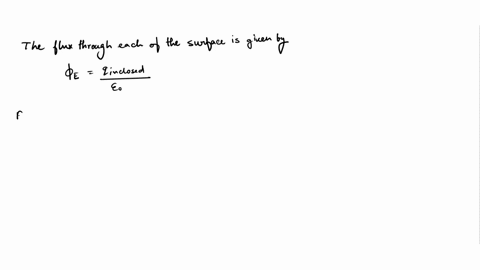 The flux through each of the surface is given by
ϕE = qinclosed / ε0
F